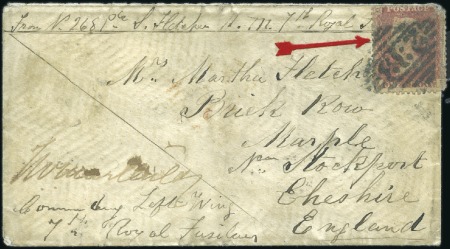 From No 2689 Pte S. Fletcher H. M. 7th Royal
Mrs Martha Fletch
Brick Row
Marple
Nr Stockport
Cheshire
England
Commdg Left Wing
7th Royal Fusiliers
POSTAGE